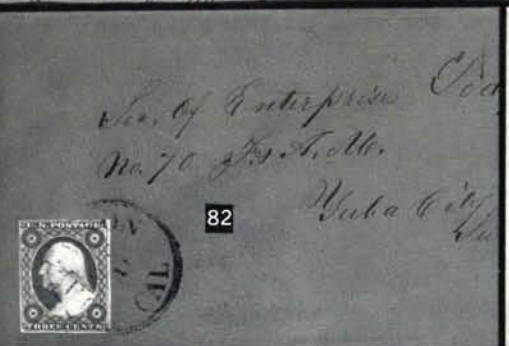 Sec. of Enterprise
No. 70 F. & A. M.
Yuba City
82
CAL
U.S. POSTAGE
THREE CENTS